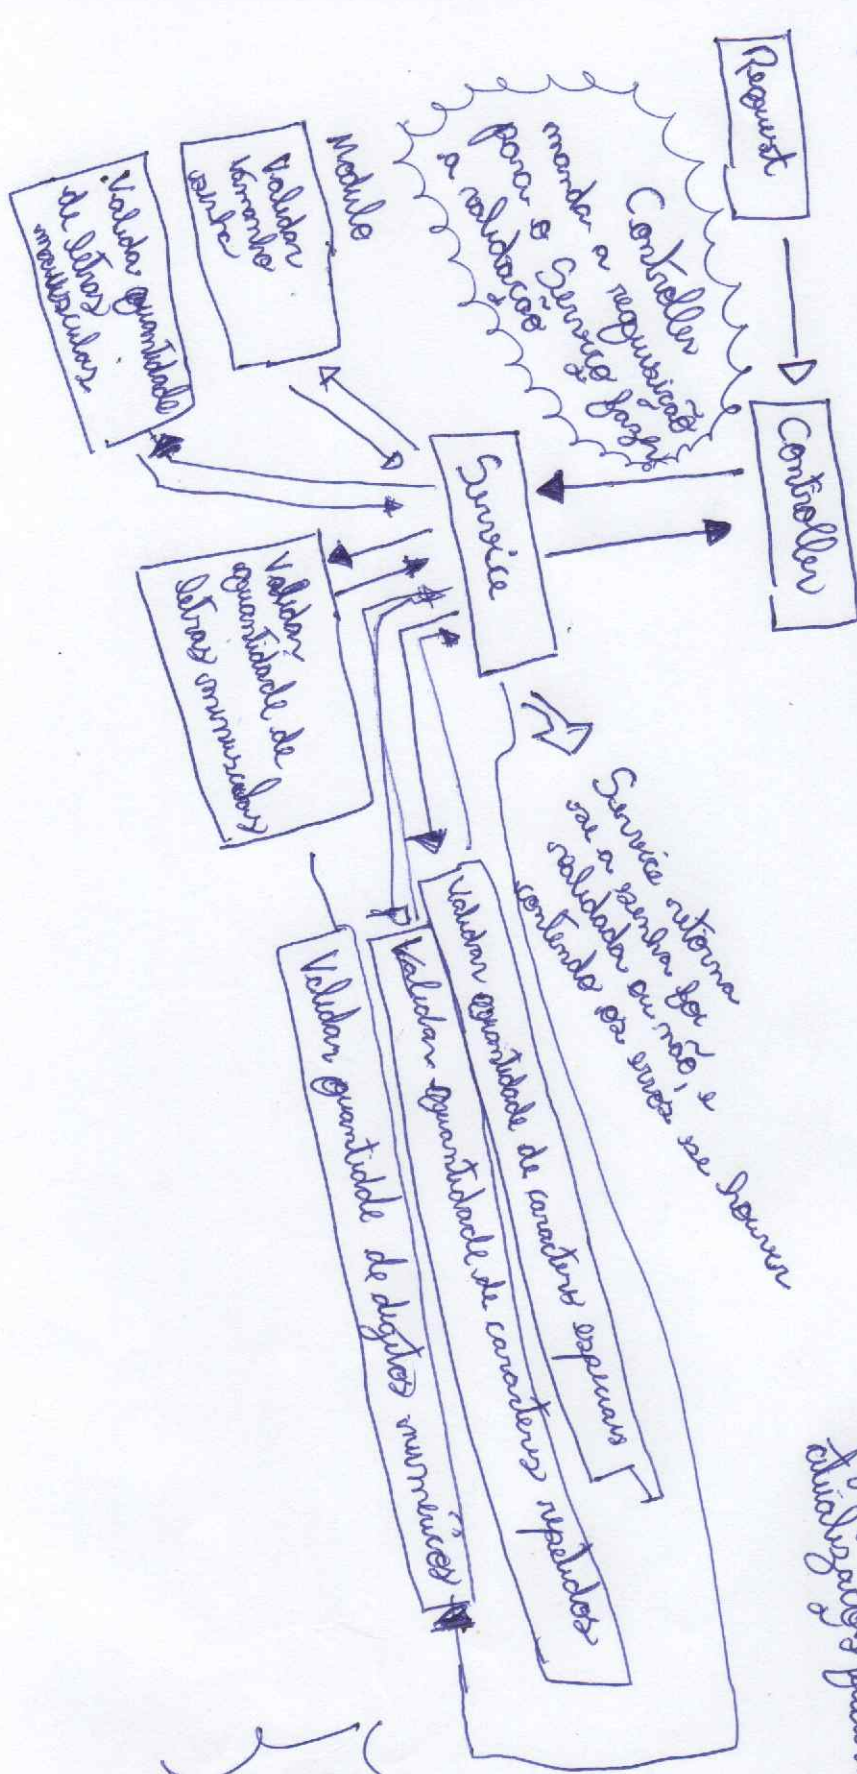 Request
Controller
Controller
manda a requisição
para o Serviço fazer
a validação
Service
Modulo
Validar
tamanho
senha
Valida quantidade
de letras
maiusculas
Validar
quantidade de
letras minusculas
Service retorna
se a senha foi
validada ou não, e
contendo os erros se houver
Validar quantidade de caracters especiais
Validar quantidade de caracteres repetidos
Validar quantidde de digitos numéricos